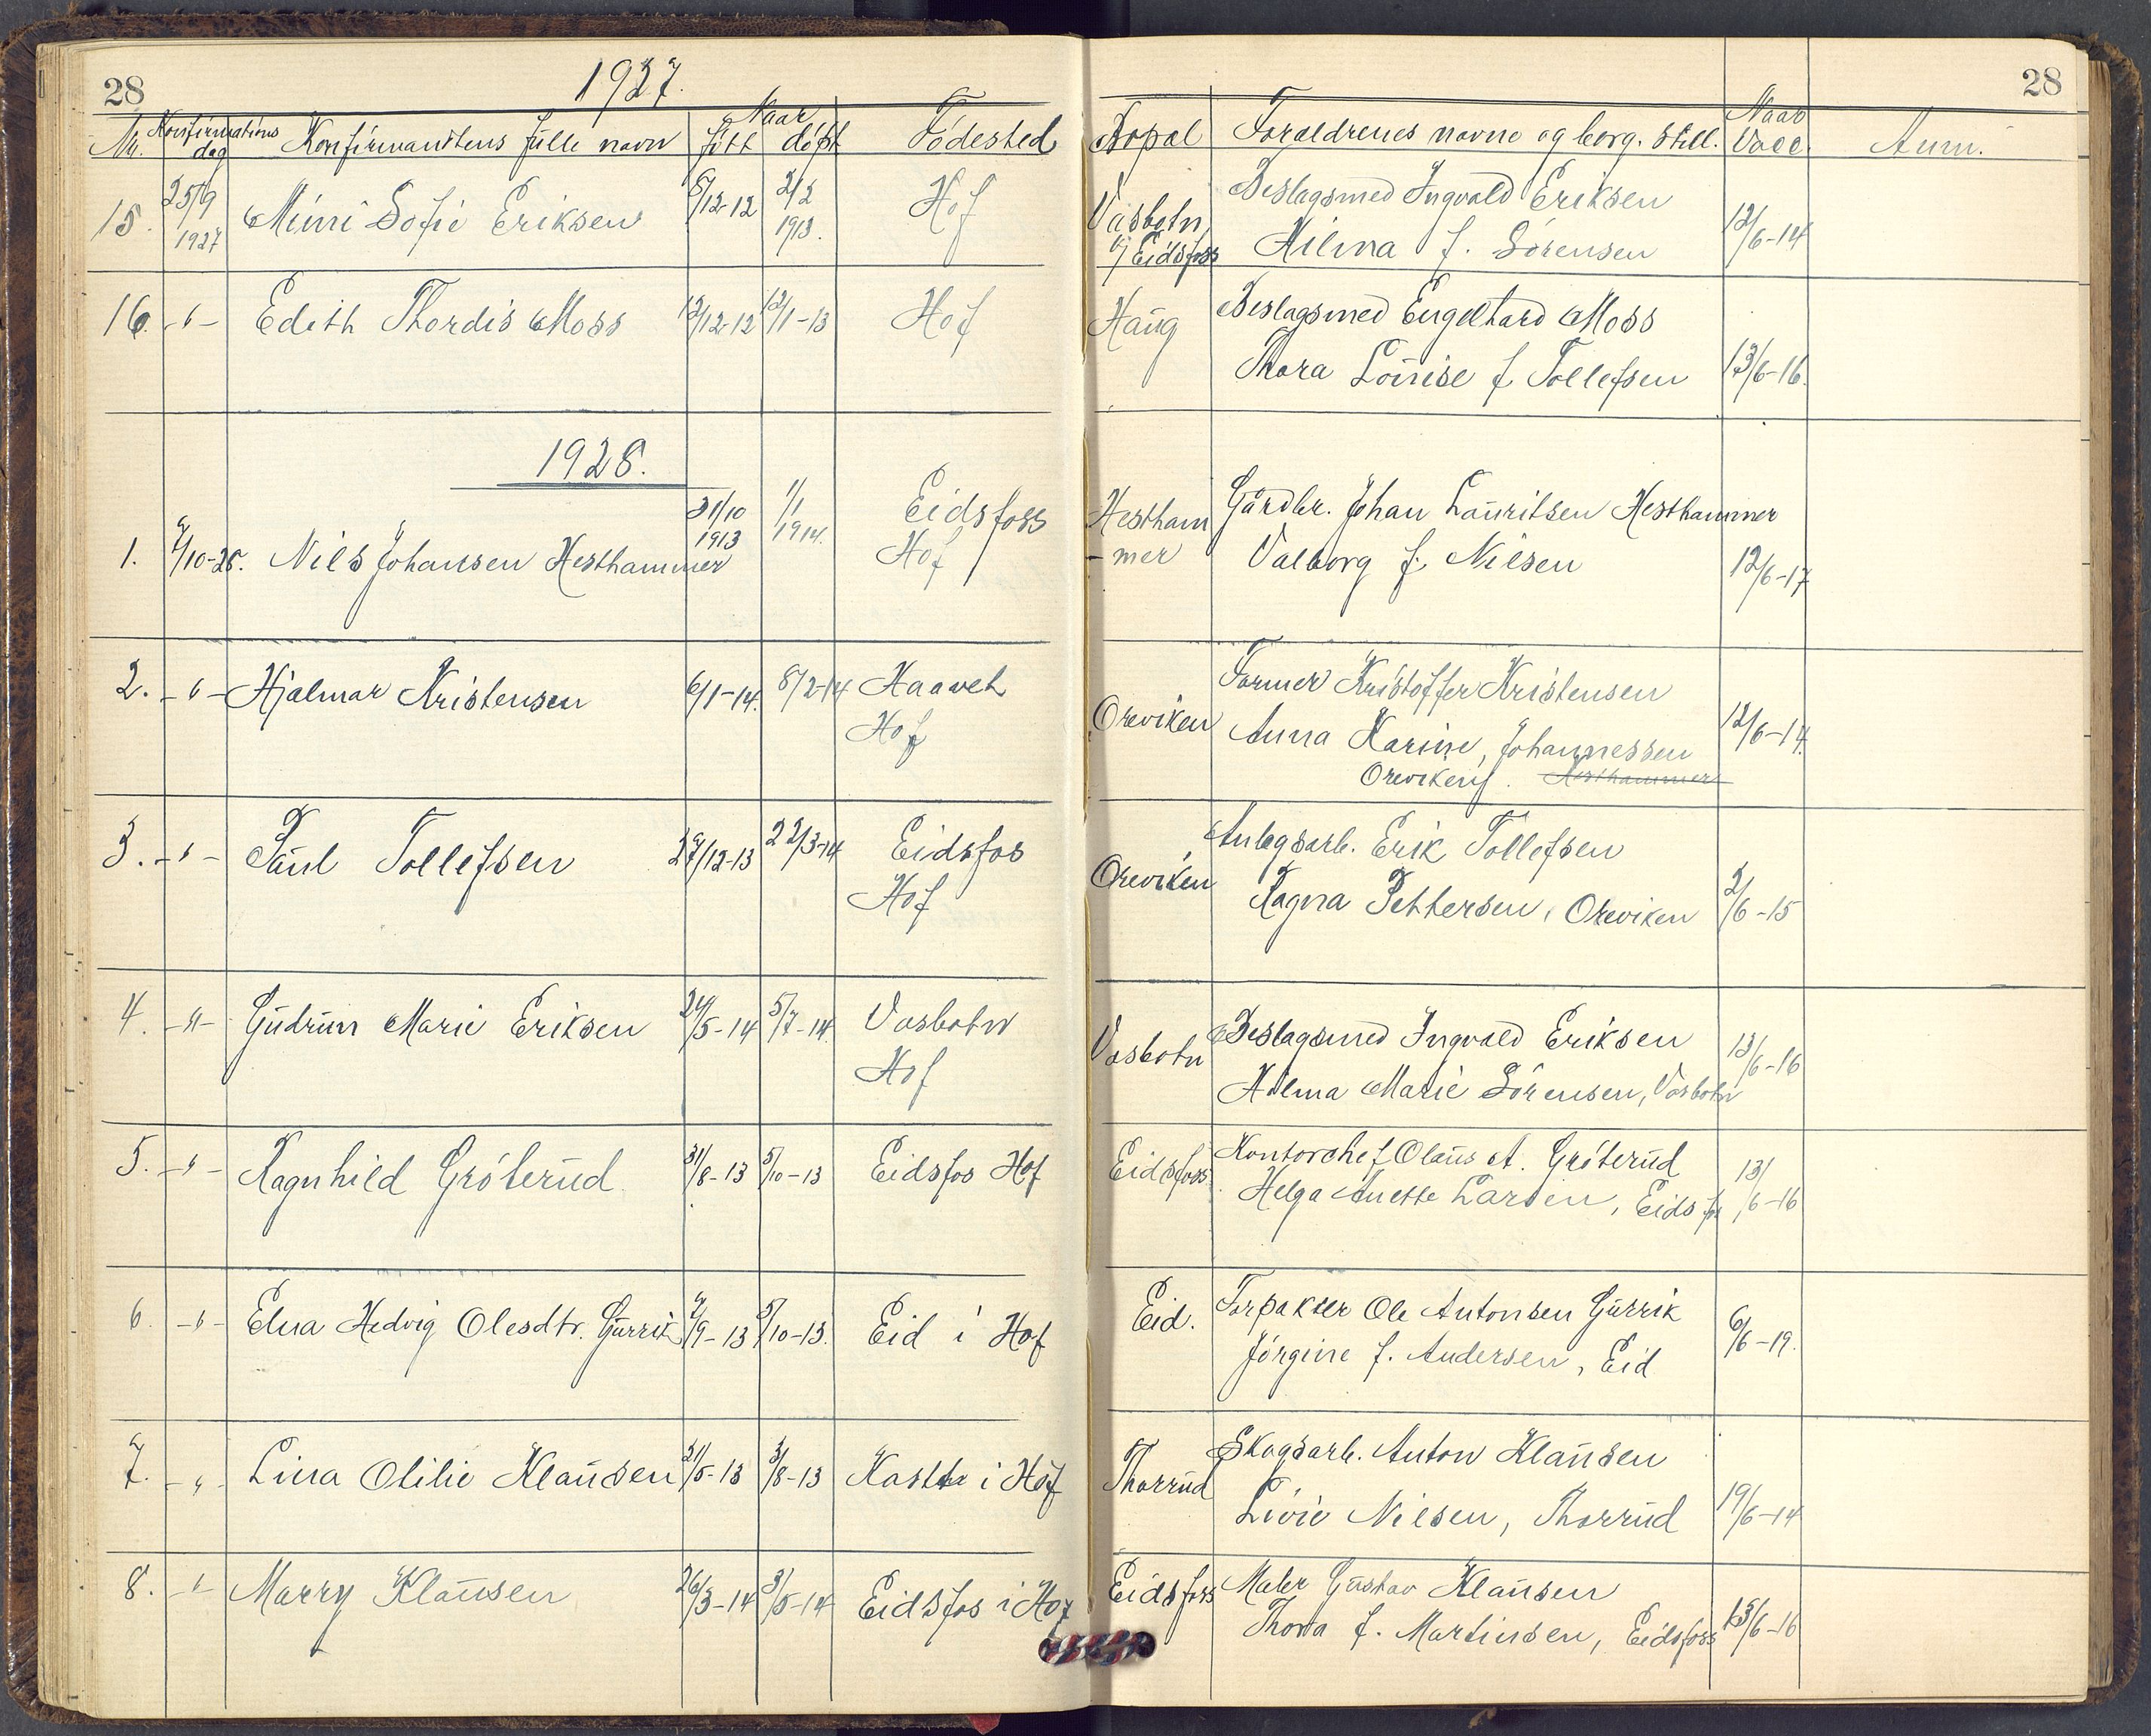 28
1927.
Nr. Konfirmations dag Konfirmantens fulle navn Naar fött döpt Födested
15. 25/9 1927 Mimi Sofie Eriksen 8/12-12 2/2 1913. Hof
16. -"- Edith Thordis Moss 13/12-12 12/1-13 Hof
1928.
1. 7/10-28. Nils Johansen Hesthammer 31/10 1913 1/1 1914. Eidsfoss
Hof
2. -"- Hjalmar Kristensen 6/1-14. 8/2-14 Haavet
Hof
3. -"- Paul Tollefsen 27/12-13 22/3-14 Eidsfos
Hof
4. -"- Gudrun Marie Eriksen 24/5-14 5/7-14. Vasbotn
Hof
5. -"- Ragnhild Gröterud 31/8-13 5/10-13 Eidsfos Hof
6. -"- Elna Hedvig Olesdtr. Gurrik 7/9-13 5/10-13. Eid i Hof
7. -"- Lina Otilie Klausen 31/5-13 3/8-13 i Hof
8. -"- Marry Klausen 26/3-14 3/5-14 Eidsfos i Hof
28
Bopæl Foraldrenes navne og borg. still. Naar Vacc. Anm.
Vasbotn
v/ Eidsfoss
Beslagsmed Ingvald Eriksen
Hilma f. Sörensen 12/6-14
Haug Beslagsmed Engelhard Moss
Thora Louise f Tollefsen 13/6-16.
Hestham
-mer
Gårdbr. Johan Lauritsen Hesthammer
Valborg f. Nilsen 12/6-17
Oreviken Former Kristoffer Kristensen
Anna Karine, Johannessen 12/6-14.
Oreviken Hesthammer
Oreviken Anlegsarb. Erik Tollefsen
Ragna Pettersen, Oreviken 2/6-15
Vasbotn Beslagsmed Ingvald Eriksen
Hilma Marie Sörensen, Vasbotn 13/6-16
Eidsfoss Kontorchef Olaus A. Gröterud
Helga Anette Larsen, Eidsfos 13/6-16
Eid. Forpakter Ole Antonsen Gurrik
Jörgine f. Andersen, Eid 6/6-19.
Thorrud Skogsarb. Anton Klausen
Livie Nilsen, Thorrud 19/6-14
Eidsfoss Maler Gustav Klausen
Thora f. Martinsen, Eidsfoss 13/6-16